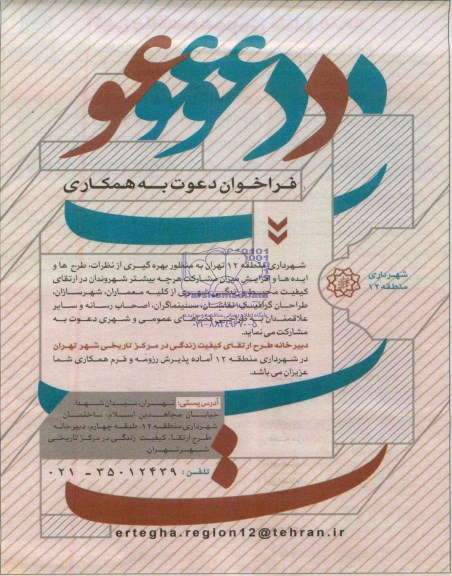 دعوت
فراخوان دعوت به همکاری
شهرداری
منطقه ۱۲
شهرداری منطقه ۱۲ تهران به منظور بهره گیری از نظرات، طرح ها و
ایده ها و افزایش میزان مشارکت هرچه بیشتر شهروندان در ارتقای
کیفیت محیط و زندگی شهری از کلیه معماران، شهرسازان،
طراحان گرافیک، نقاشان، سینماگران، اصحاب رسانه و سایر
علاقمندان به طراحی فضاهای عمومی و شهری دعوت به
مشارکت می نماید.
دبیرخانه طرح ارتقای کیفیت زندگی در مرکز تاریخی شهر تهران
در شهرداری منطقه ۱۲ آماده پذیرش رزومه و فرم همکاری شما
عزیزان می باشد.
آدرس پستی: تهران، میدان شهدا،
خیابان مجاهدین اسلام، ساختمان
شهرداری منطقه ۱۲، طبقه چهارم، دبیرخانه
طرح ارتقاء کیفیت زندگی در مرکز تاریخی
شهر تهران.
تلفن: ۳۵۰۱۲۴۳۹ - ۰۲۱
ertegha.region12@tehran.ir